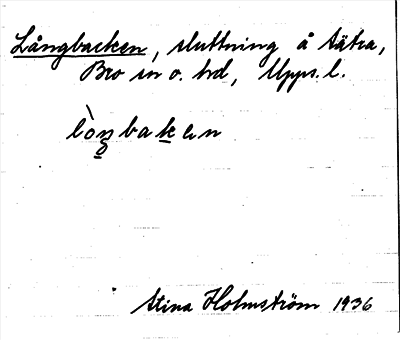 Långbacken, sluttning å Sätra,
Bro sn o. hd, Upps. l.
lò̀ŋbaken
Stina Holmström 1936